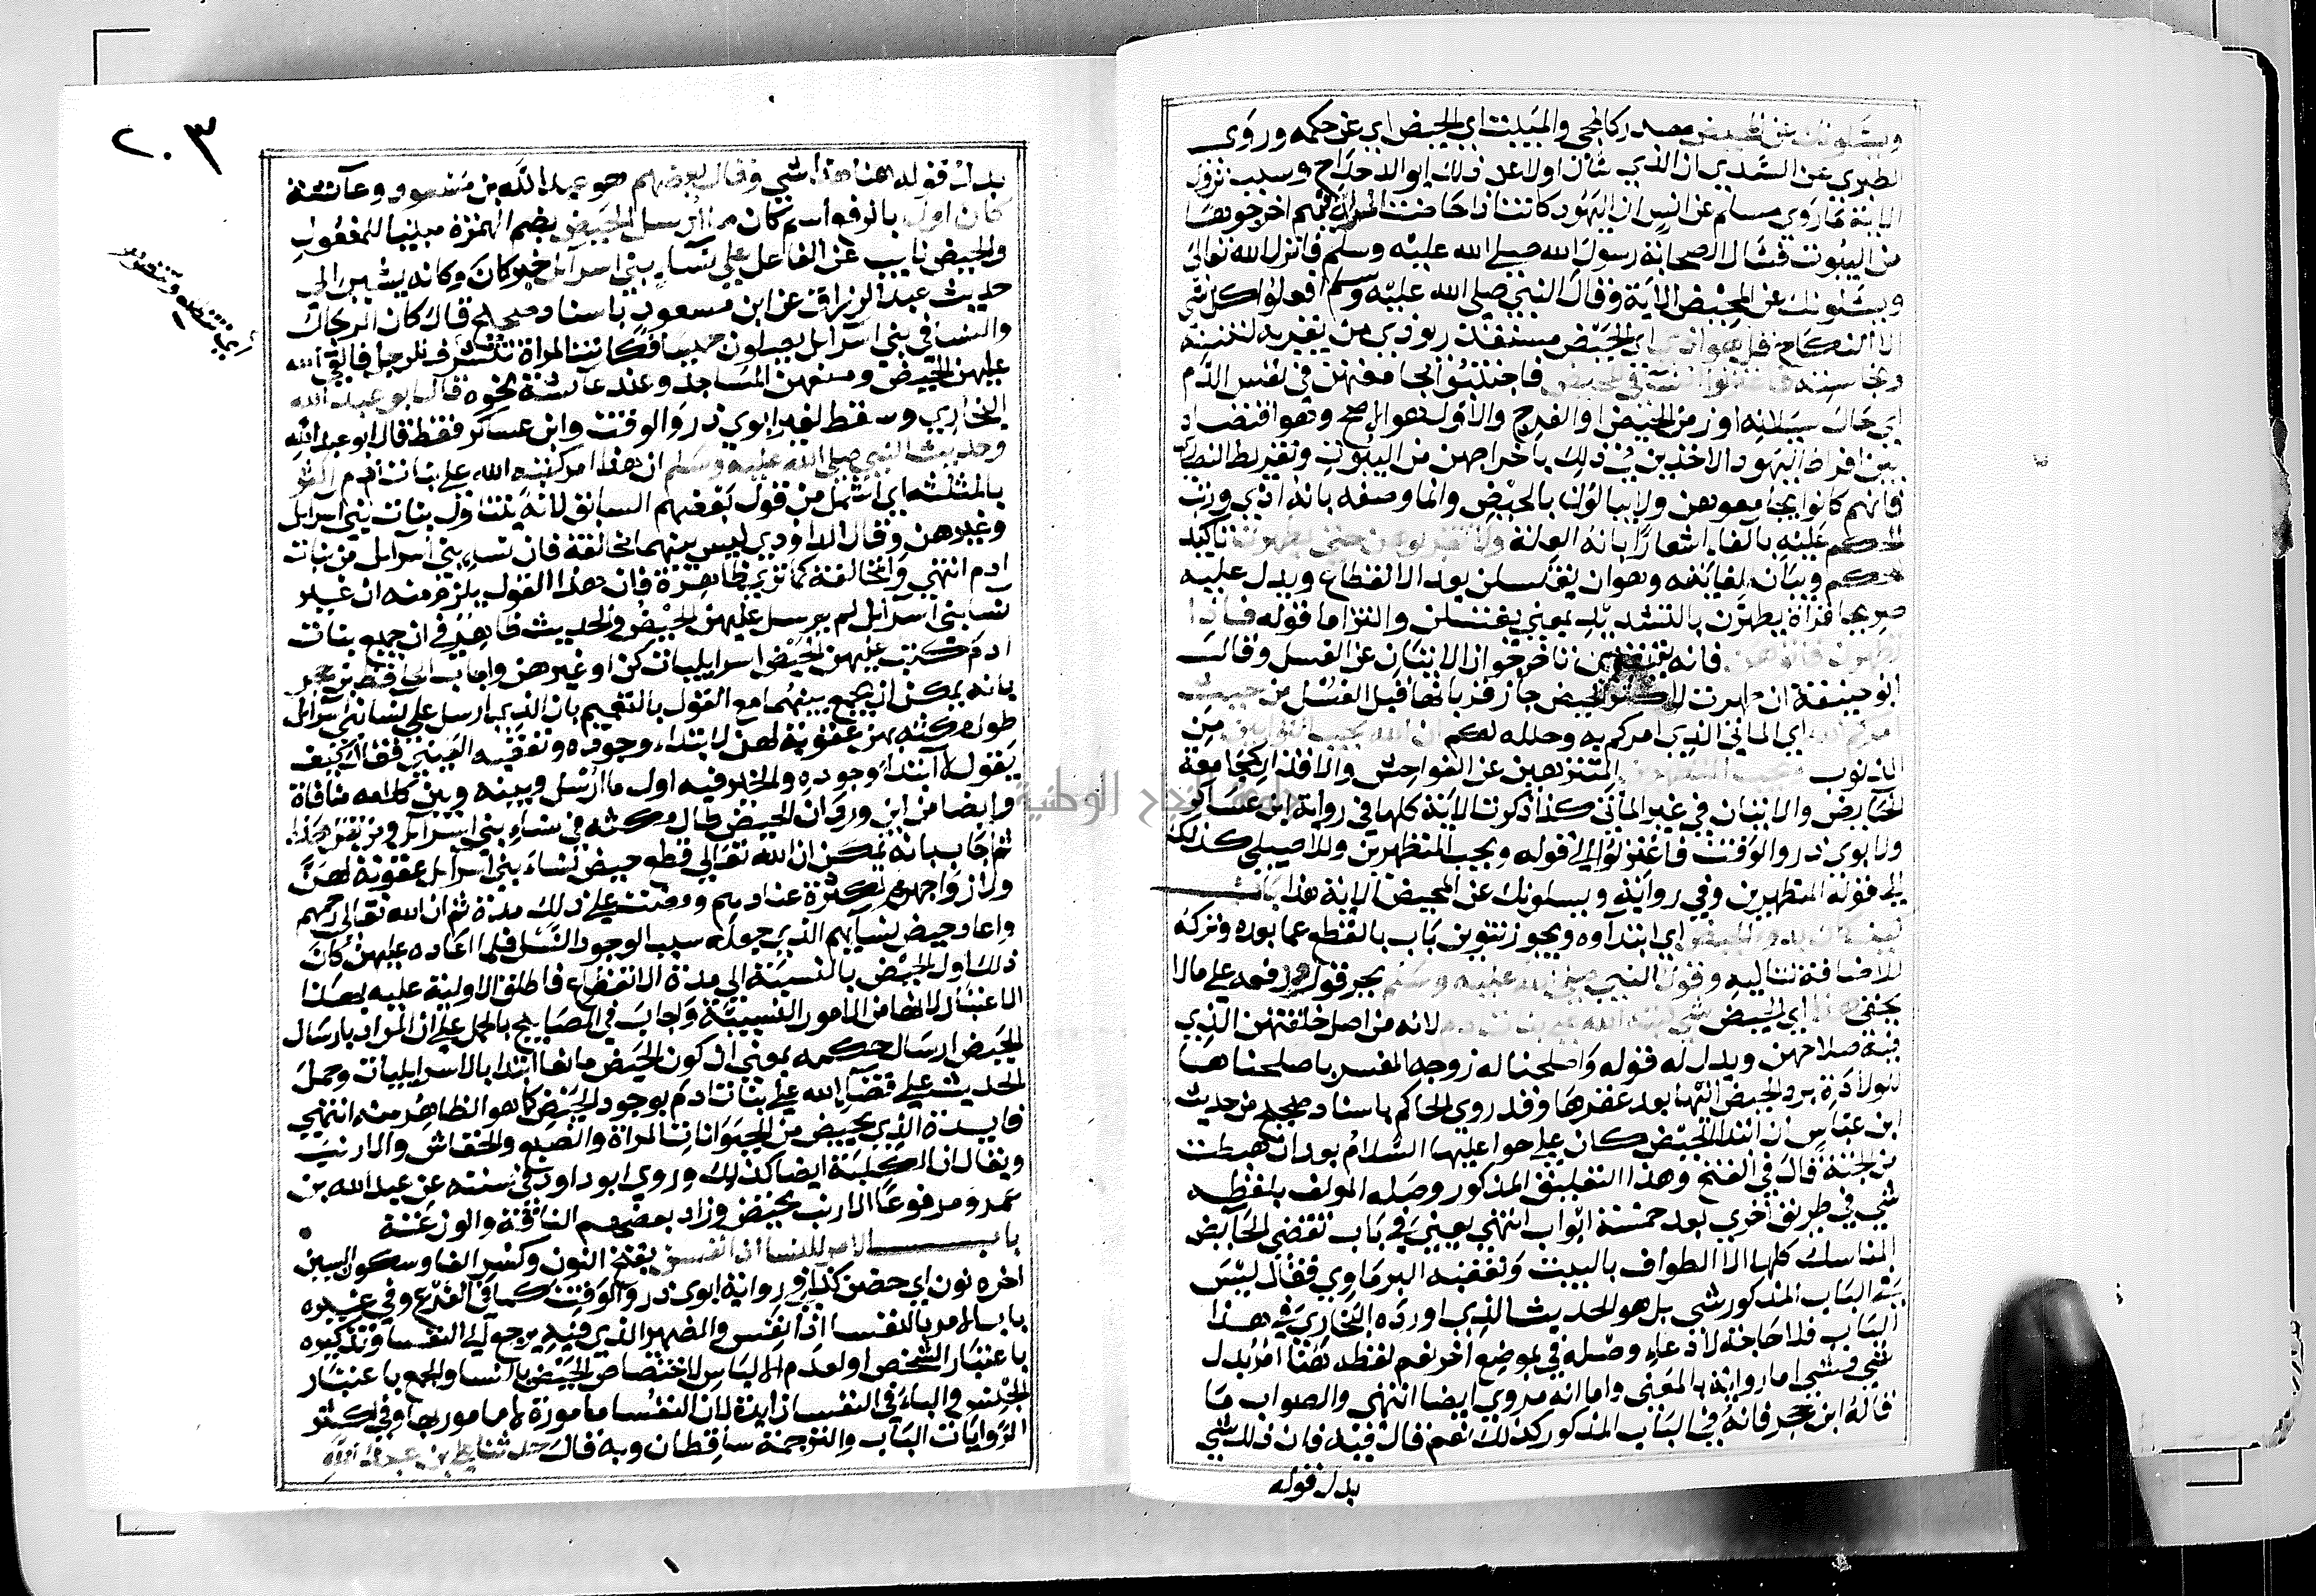 ويسئلونك عن المحيض مصدر كالمجي والمبيت اي الحيض اي عن حكمه وروى
الطبري عن السدي ان الذي سأل اولا عن ذلك ابو الدحداح وسبب نزول
الاية ما روي مسلم عن انس ان اليهود كانت اذا حاضت المراة منهم اخرجوها
من البيوت فسأل الصحابة رسول الله صلى الله عليه وسلم فانزل الله تعالى
ويسئلونك عن المحيض الاية وقال النبي صلى الله عليه وسلم افعلوا كل شي
الا النكاح قل هو اذى اي الحيض مستقذر يوذي من يقربه لنتنه
ونجاسته فاعتزلوا النسا في المحيض فاجتنبوا مجامعتهن في نفس الدم
اي حال سيلانه او زمن الحيض او الفرج والاول هو الاصح وهو اقتصاد
بين افراط اليهود الاخذين في ذلك باخراجهن من البيوت وتفريط النصارى
فانهم كانوا يجامعوهن ولا يبالون بالحيض وانما وصفه بانه اذي ورتب
الحكم عليه بالفاء اشعارا بانه العلة ولا تقربوهن حتى يطهرن تاكيد
للحكم وبيان لغايته وهو ان يغتسلن بعد الانقطاع ويدل عليه
صريحا قراة يطهرن بالتشديد بمعني يغتسلن والتزاما قوله فاذا
تطهرن فاتوهن فانه يقتضي تاخر جواز الاتيان عن الغسل وقالت
ابو حنيفة ان طهرت لاكثر الحيض جاز قربانها قبل الغسل من حيث
امركم الله اي الماتي الذي امركم به وحلله لكم ان الله يحب التوابين من
الذنوب ويحب المتطهرين المتنزهين عن الفواحش والاقذار كمجامعة
الحايض والاتيان في غير الماتي كذا ذكرت الاية كلها في رواية ابن عساكر
ولابوي ذر والوقت فاعتزلوا الي قوله ويحب المتطهرين وللاصيلي كذلك
الي قوله المتطهرين وفي رواية ويسئلونك عن المحيض الاية هذا باب
كيف كان بدو الحيض اي ابتداوه ويجوز تنوين باب بالقطع عما بعده وتركه
للاضافة لتاليه وقول النبي صلى الله عليه وسلم بجر قول ورفعه علي مالا
يخفى هذا اي الحيض شي كتبه الله على بنات ادم لانه من اصل خلقتهن الذي
فيه صلاحهن ويدل له قوله واصلحنا له زوجه المفسر باصلحناها
للولادة برد الحيض اليها بعد عقرها وقد روى الحاكم باسناد صحيح من حديث
ابن عباس ان ابتدا الحيض كان علي حوا عليها السلام بعد ان هبطت
من الجنة قال في الفتح وهذا التعليق المذكور وصله المولف بلفظه
شي في طريق اخري بعد خمسة ابواب انتهي يعني في باب تقضي الحايض
المناسك كلها الا الطواف بالبيت وتعقبه البرماوي فقال ليس
في الباب المذكور شي بل هو الحديث الذي اورده البخاري في هذا
الباب فلا حاجة لادعاء وصله في موضع اخر نعم لفظه هنا امر بدل
شي فشي اما رواية بالمعني واما انه مروي ايضا انتهي والصواب ما
قاله ابن حجر فانه في الباب المذكور كذلك نعم قال فيه فان ذلك شي
بدل قوله
٢٠٣
بدل قوله هنا هذا شي وقال بعضهم هو عبد الله بن مسعود وعائشة
كان اول بالرفع اسم كان ما ارسل الحيض بضم الهمزة مبنيا للمفعول
والحيض نايب عن الفاعل علي نساء بني اسرايل خبر كان وكانه يشير الى
حديث عبد الرزاق عن ابن مسعود باسناد صحيح قال كان الرجال
والنسا في بني اسرايل يصلون جميعا فكانت المراة تتشرف للرجل فالقى الله
عليهن الحيض ومنعهن المساجد وعند عائشة نحوه قال ابو عبد الله
البخاري وسقط لغير ابوي ذر والوقت وابن عساكر فقط قال ابو عبد الله
وحديث النبي صلى الله عليه وسلم ان هذا امر كتبه الله على بنات ادم اكثر
بالمثلثه اي اشمل من قول بعضهم السابق لانه يتناول بنات بني اسرايل
وغيرهن وقال الداودي ليس بينهما مخالفة فان نساء بني اسرايل من بنات
ادم انتهي والمخالفة كما ترى ظاهرة فان هذا القول يلزم منه ان غير
نسا بني اسرايل لم يرسل عليهن الحيض والحديث ظاهر في ان جميع بنات
ادم كتب عليهن الحيض اسرايليات كن او غيرهن واجاب الحافظ بن حجر
بانه يمكن ان يجمع بينهما مع القول بالتعميم بان الذي ارسل علي نسا بني اسرايل
طول مكثه بهن عقوبة لهن لا ابتداء وجوده وتعقبه العيني فقال كيف
يقول لا ابتداء وجوده والخبر فيه اول ما ارسل وبينه وبين كلامه منافاة
وايضا من اين ورد ان الحيض طال مكثه في نساء بني اسرايل ومن نقل هذا
ثم اجاب بانه يمكن ان الله تعالي قطع حيض نساء بني اسرايل عقوبة لهن
ولازواجهن لكثرة عنادهم ومضت علي ذلك مدة ثم ان الله تعالى رحمهم
واعاد حيض نسايهم الذي جعله سبب الوجود النسل فلما اعاده عليهن كان
ذلك اول الحيض بالنسبة الي مدة الانقطاع فاطلق الاولية عليه بهذا
الاعتبار لانها من الامور النسبية واجاب في المصابيح بالحمل علي ان المراد بارسال
الحيض ارسال حكمه بمعني ان كون الحيض مانعا ابتدا بالاسرايليات وحمل
الحديث علي قضاء الله علي بنات ادم بوجود الحيض كما هو الظاهر منه انتهي
فايدة الذي يحيض من الحيوانات المراة والضبع والخفاش والارنب
ويقال ان الكلبة ايضا كذلك وروي ابو داود في سننه عن عبد الله بن
عمرو مرفوعا الارنب تحيض وزاد بعضهم الناقة والوزغة
باب الامر للنسا اذا نفسن بفتح النون وكسر الفا وسكون السين
اخره نون اي حضن كذا في رواية ابوي ذر والوقت كما في الفرع وفي غيره
باب الامر بالنفسا اذا نفس والضمير الذي فيه يرجع الي النفسا وتذكيره
باعتبار الشخص او لعدم الالباس لاختصاص الحيض بالنسا والجمع باعتبار
الجنس والباء في النفسا زايدة لان النفسا مامورة لا مامور بها وفي اكثر
الروايات الباب والترجمة ساقطان وبه قال حدثنا علي بن عبد الله